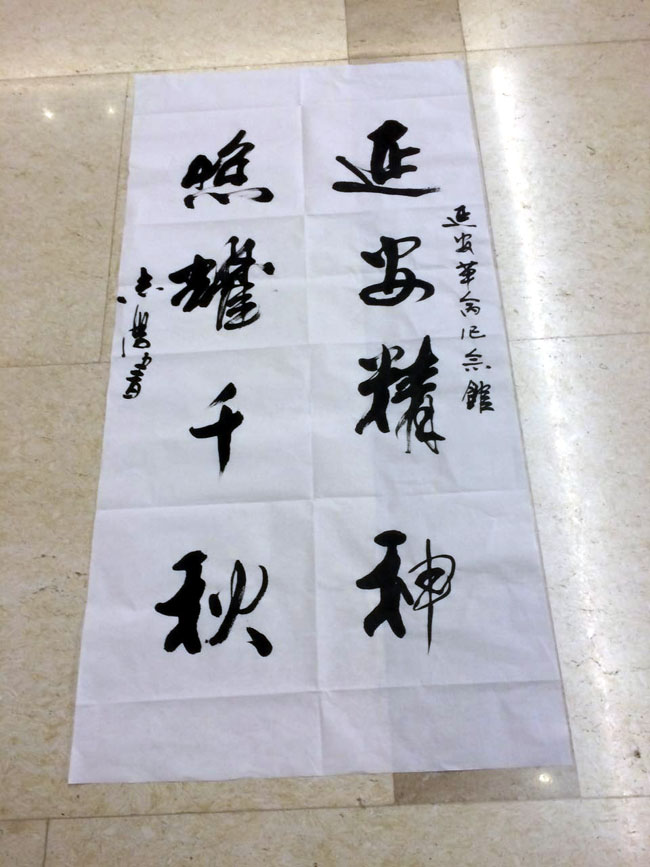 延安革命纪念館
延安精神
照耀千秋